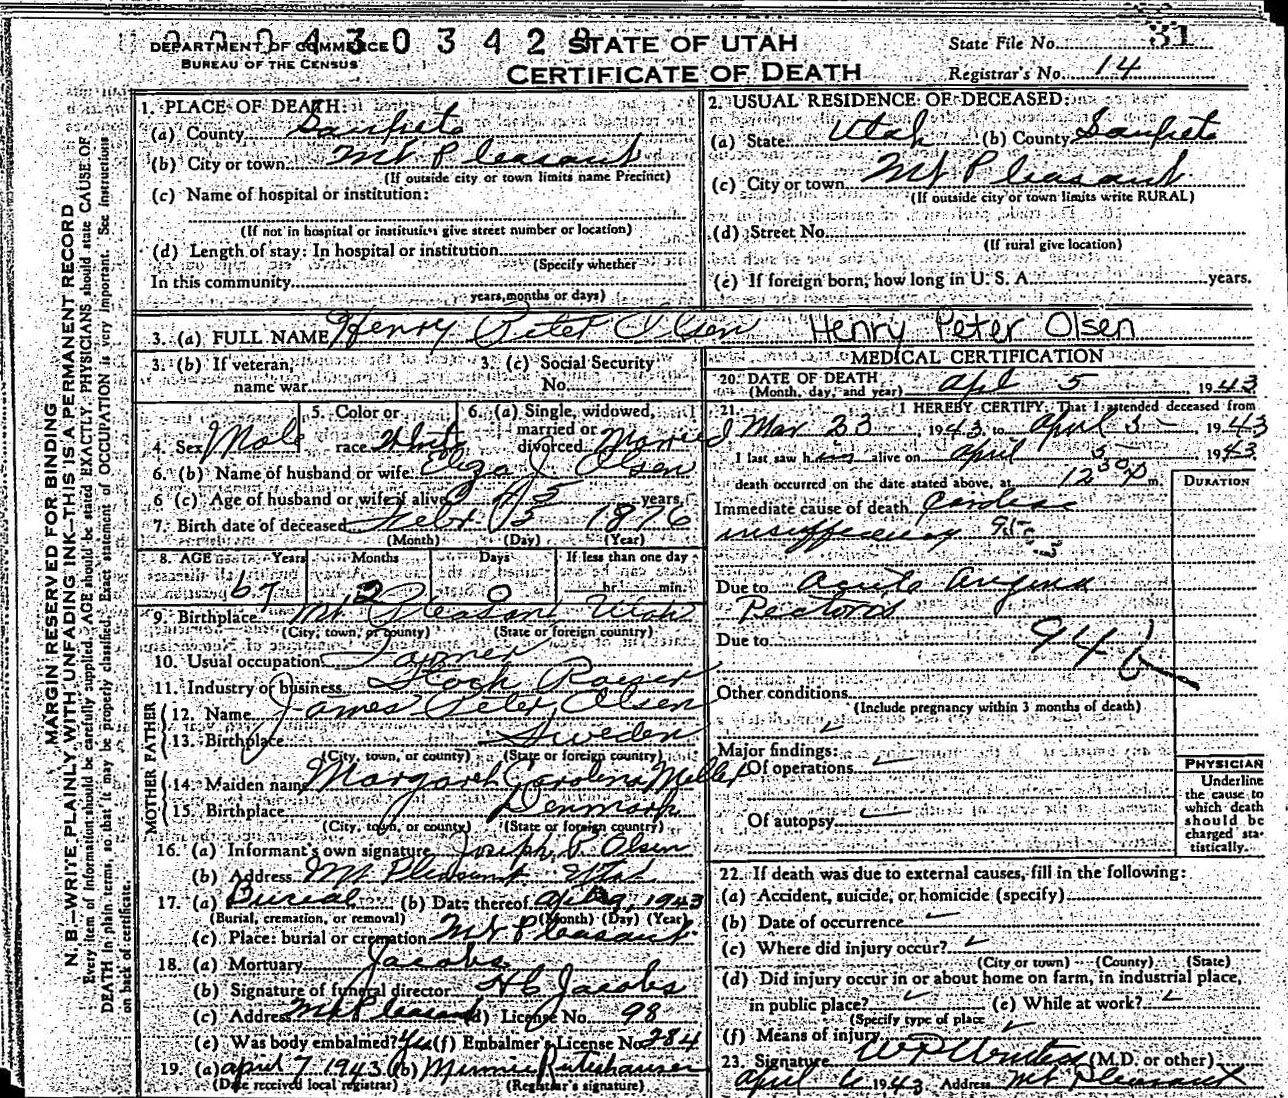 DEPARTMENT OF COMMERCE
BUREAU OF THE CENSUS
STATE OF UTAH
CERTIFICATE OF DEATH
State File No. 31
Registrar's No. 14
MARGIN RESERVED FOR BINDING
N. B.—WRITE PLAINLY WITH UNFADING INK—THIS IS A PERMANENT RECORD
Every item of information should be carefully supplied. AGE should be stated EXACTLY. PHYSICIANS should state CAUSE OF
DEATH in plain terms, so that it may be properly classified. Exact statement of OCCUPATION is very important. See instructions
on back of certificate.
1. PLACE OF DEATH:
(a) County Sanpete
(b) City or town Mt Pleasant
(If outside city or town limits name Precinct)
(c) Name of hospital or institution:
(If not in hospital or institution give street number or location)
(d) Length of stay: In hospital or institution
(Specify whether
In this community
years, months or days)
2. USUAL RESIDENCE OF DECEASED:
(a) State Utah (b) County Sanpete
(c) City or town Mt Pleasant
(If outside city or town limits write RURAL)
(d) Street No.
(If rural give location)
(e) If foreign born, how long in U. S. A. years.
3. (a) FULL NAME Henry Peter Olsen Henry Peter Olsen
3. (b) If veteran, name war
3. (c) Social Security No.
4. Sex Male
5. Color or race White
6. (a) Single, widowed, married or divorced Married
6. (b) Name of husband or wife Eliza J. Olsen
6 (c) Age of husband or wife if alive years
7. Birth date of deceased Feb 1876
(Month) (Day) (Year)
8. AGE Years Months Days If less than one day
67 2 0 hr. min.
9. Birthplace Mt Pleasant Utah
(City, town, or county) (State or foreign country)
10. Usual occupation Farmer
11. Industry or business Stock Raiser
FATHER
12. Name James Peter Olsen
13. Birthplace Sweden
(City, town, or county) (State or foreign country)
MOTHER
14. Maiden name Margareth Carolena
15. Birthplace Denmark
(City, town, or county) (State or foreign country)
16. (a) Informant's own signature Joseph P. Olsen
(b) Address Mt Pleasant Utah
17. (a) Burial (b) Date thereof 1943
(Burial, cremation, or removal) (Month) (Day) (Year)
(c) Place: burial or cremation Mt Pleasant
18. (a) Mortuary Jacobs
(b) Signature of funeral director H C Jacobs
(c) Address Mt Pleasant (d) License No. 98
(e) Was body embalmed? Yes (f) Embalmer's License No. 284
19. (a) april 7 1943 (b) Minnie Rutishauser
(Date received local registrar) (Registrar's signature)
MEDICAL CERTIFICATION
20. DATE OF DEATH April 5 1943
(Month, day, and year)
21. I HEREBY CERTIFY, That I attended deceased from
Mar 23 1943, to April 5 1943
I last saw him alive on April 5 1943
death occurred on the date stated above, at 12 30 p m.
DURATION
Immediate cause of death Cardiac
insufficiency
Due to Acute Angina
Pectoris
Due to
94 b
Other conditions
(Include pregnancy within 3 months of death)
Major findings:
Of operations
Of autopsy
PHYSICIAN
Underline
the cause to
which death
should be
charged sta-
tistically.
22. If death was due to external causes, fill in the following:
(a) Accident, suicide, or homicide (specify)
(b) Date of occurrence
(c) Where did injury occur?
(City or town) (County) (State)
(d) Did injury occur in or about home on farm, in industrial place,
in public place? (e) While at work?
(Specify type of place
(f) Means of injury
23. Signature (M.D. or other)
April 6 1943 Address Mt Pleasant